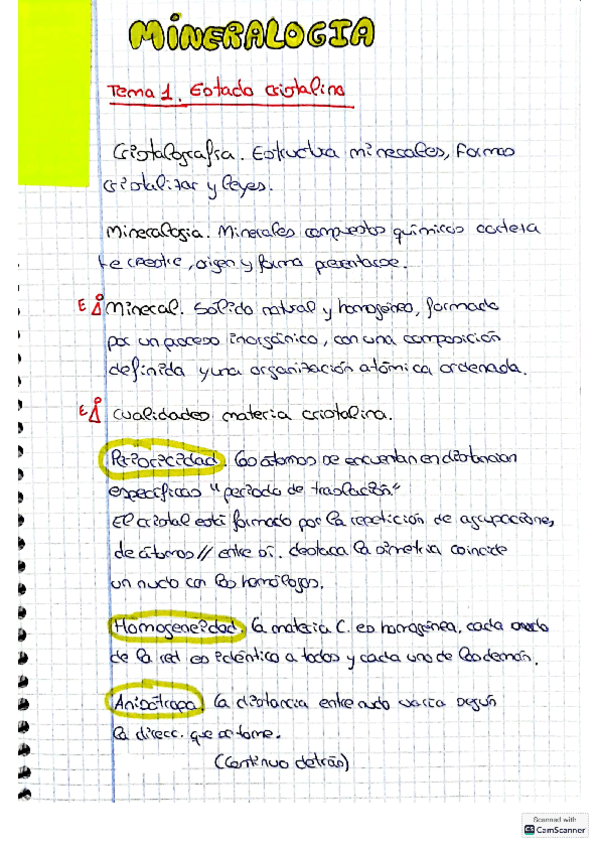 MINERALOGIA
Tema 1. Estado cristalino
Cristalografia. Estructura minerales, formas
cristalizar y leyes.
Mineralogia. Minerales compuestos químicos corteza
terrestre, origen y forma presentarse.
E Mineral. Sólido natural y homogéneo, formado
por un proceso inorgánico, con una composición
definida y una organización atómica ordenada.
E cualidades materia cristalina.
Periodicidad. Los átomos se encuentran en distancian
específicas "periodo de traslación"
El cristal está formado por la repetición de agrupacione,
de átomos // entre si. destaca la simetria coincide
un nudo con los homólogos.
Homogeneidad. la materia C. es homogénea, cada nudo
de la red es idéntico a todos y cada uno de los demás.
Anisótropa. La distancia entre nudo varia según
la direcc. que se tome.
(Continuo detrás)
Scanned with
CS CamScanner